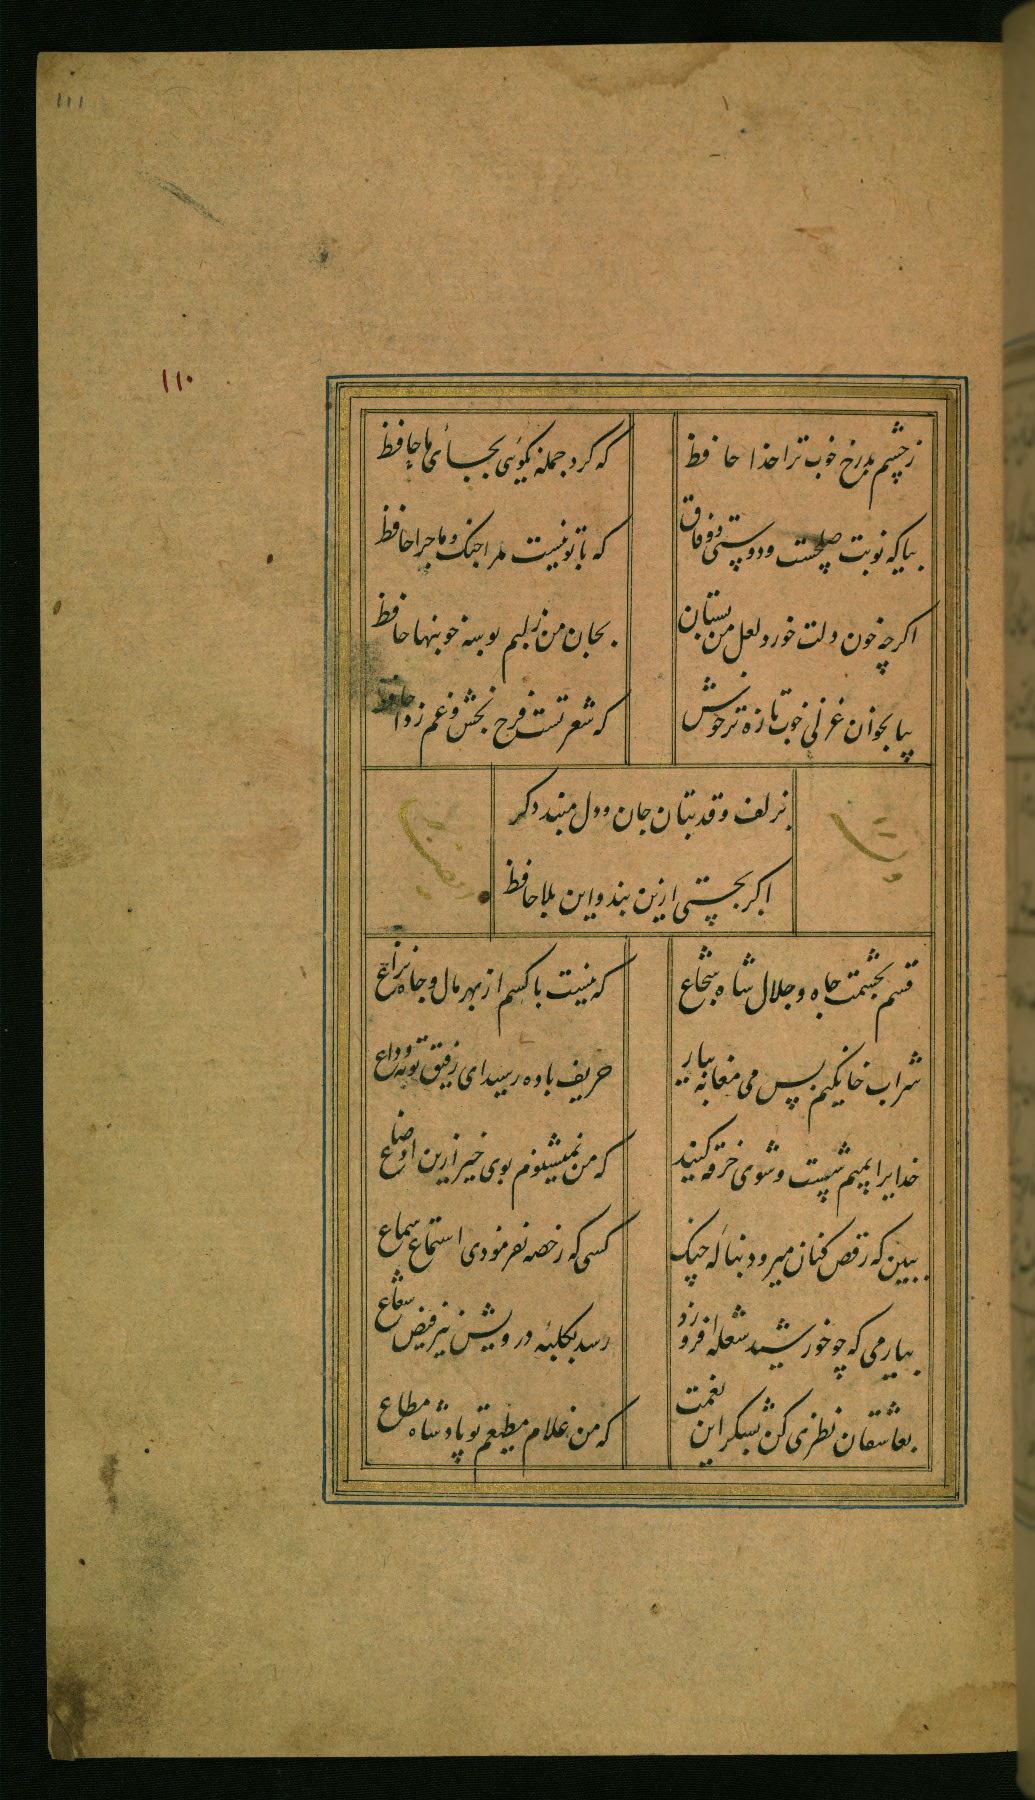 111
۱۱۰
ز چشم بد رخ خوب ترا خدا حافظ
که کرد جمله نکوئی بجای ما حافظ
بیا که نوبت صلحست و دوستی و وفاق
که با تو نیست مرا جنک و ماجرا حافظ
اکرچه خون دلت خورد لعل من بستان
بجان من ز لبم بوسه خونبها حافظ
بیا بخوان غزلی خوب تازه تر خوش
که شعر تست فرح بخش و غم زدا حافظ
بزلف و قد بتان جان و دل مبند دکر
اکر بجستی ازین بند و این بلا حافظ
وله
ایضا
قسم بحشمت جاه و جلال شاه شجاع
که نیست با کسم از بهر مال و جاه نزاع
شراب خانکیم بس می مغانه بیار
حریف باده رسید ای رفیق توبه وداع
خدایرا بمیم شست و شوی خرقه کنید
که من نمیشنوم بوی خیر ازین اوضاع
ببین که رقص کنان میرود بناله چنک
کسی که رخصه نفرمودی استماع سماع
بیار می که چو خورشید شعله افروزد
رسد بکلبهٔ درویش نیز فیض شعاع
بعاشقان نظری کن بشکر این نعمت
که من غلام مطیعم تو پادشاه مطاع